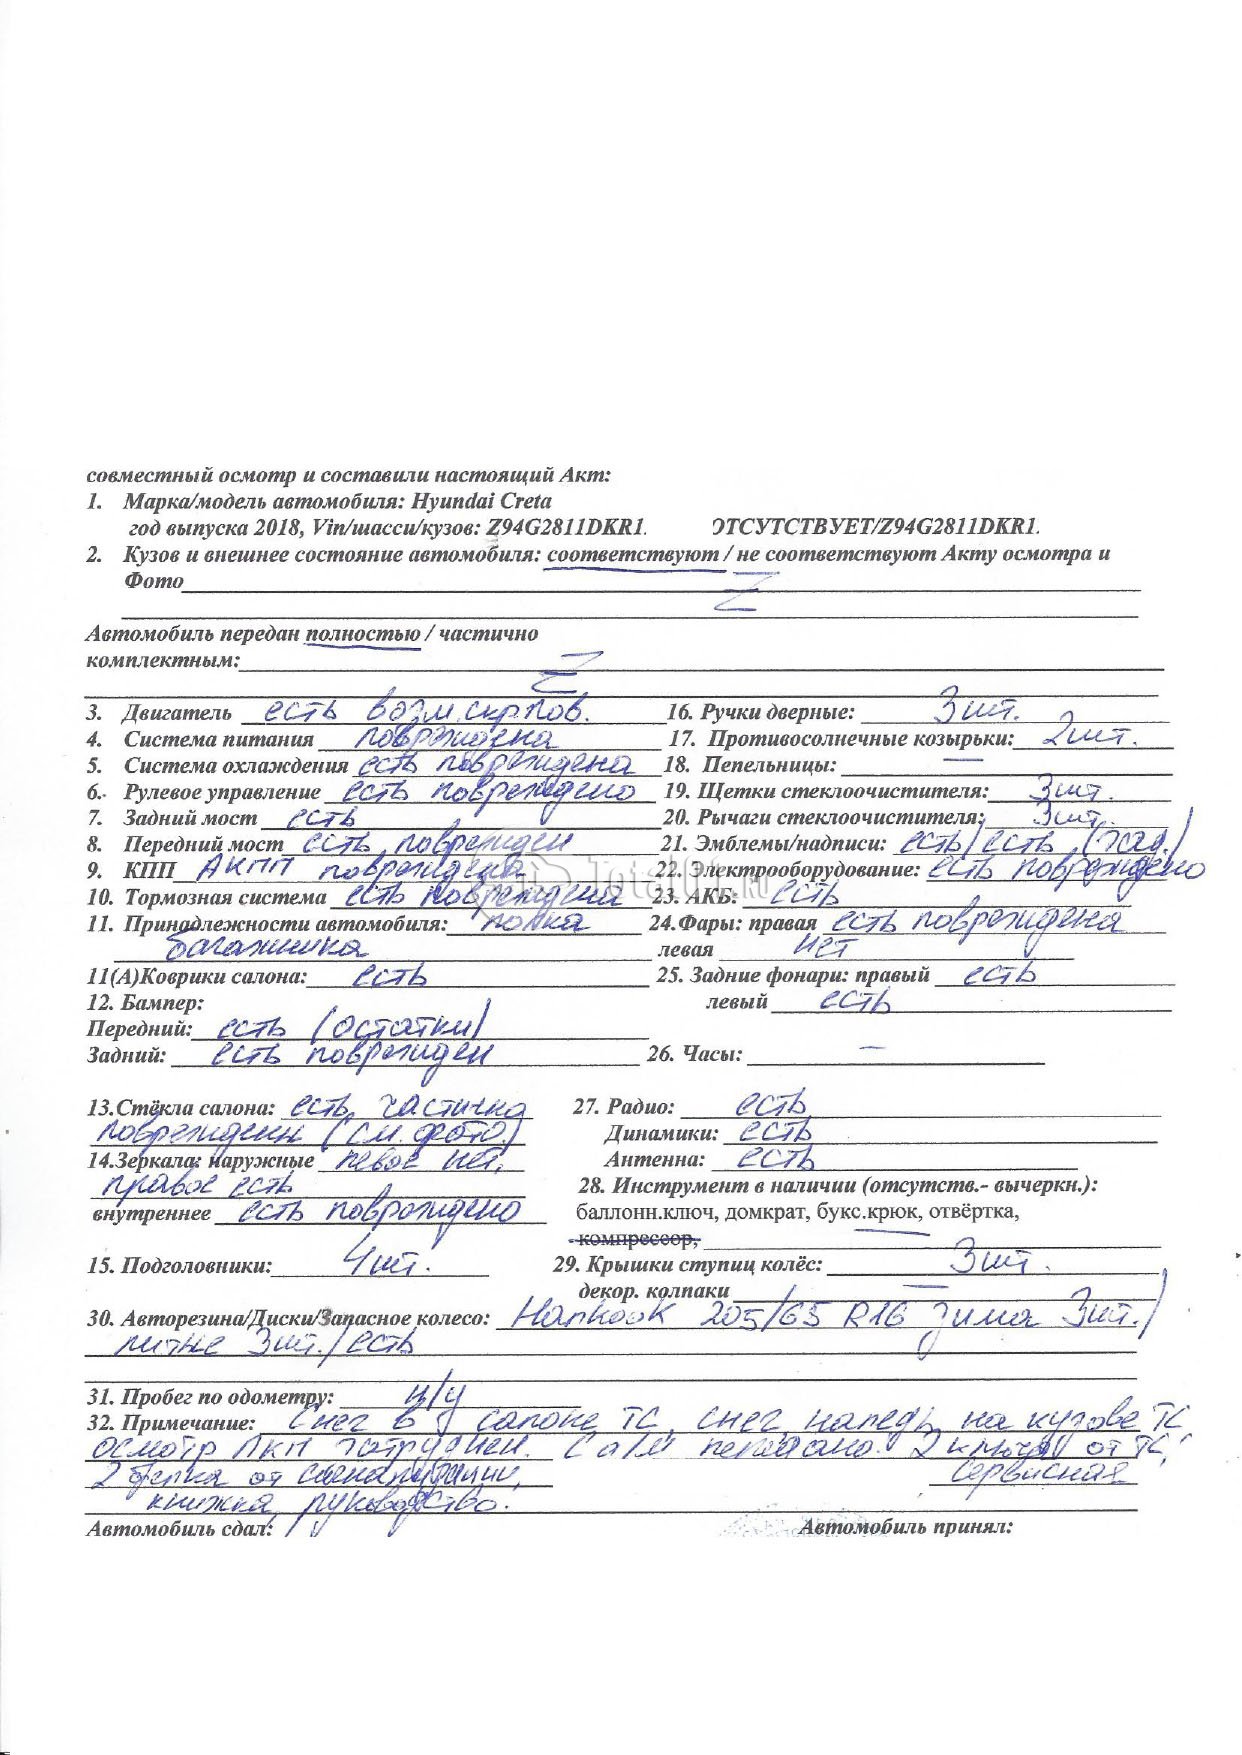 совместный осмотр и составили настоящий Акт:
1. Марка/модель автомобиля: Hyundai Creta
год выпуска 2018, Vin/шасси/кузов: Z94G2811DKR1. ОТСУТСТВУЕТ/Z94G2811DKR1.
2. Кузов и внешнее состояние автомобиля: соответствуют / не соответствуют Акту осмотра и
Фото
Автомобиль передан полностью / частично
комплектным:
3. Двигатель есть возм. скр. пов. 16. Ручки дверные: 3 шт.
4. Система питания повреждена 17. Противосолнечные козырьки: 2 шт.
5. Система охлаждения есть повреждена 18. Пепельницы: —
6. Рулевое управление есть повреждено 19. Щетки стеклоочистителя: 3 шт.
7. Задний мост есть 20. Рычаги стеклоочистителя: 3 шт.
8. Передний мост есть, поврежден 21. Эмблемы/надписи: есть/есть (зад.)
9. КПП АКПП повреждена 22. Электрооборудование: есть повреждено
Total01.ru
10. Тормозная система есть повреждена 23. АКБ: есть
11. Принадлежности автомобиля: полка 24.Фары: правая есть повреждена
багажника левая нет
11(А)Коврики салона: есть 25. Задние фонари: правый есть
12. Бампер: левый есть
Передний: есть (остатки)
Задний: есть поврежден 26. Часы: —
13.Стёкла салона: есть, частично 27. Радио: есть
повреждены (см. фото) Динамики: есть
14.Зеркала: наружные левое нет, Антенна: есть
правое есть 28. Инструмент в наличии (отсутств.- вычеркн.):
внутреннее есть повреждено баллонн.ключ, домкрат, букс.крюк, отвёртка,
компрессор,
15. Подголовники: 4 шт. 29. Крышки ступиц колёс: 3 шт.
декор. колпаки —
30. Авторезина/Диски/Запасное колесо: Hankook 205/65 R16 зима 3 шт./
литые 3 шт./есть
31. Пробег по одометру: н/у
32. Примечание: Снег в салоне ТС, снег наледь на кузове ТС,
осмотр ЛКП затруднен. С а/м передано: 2 ключа от ТС,
2 брелка от сигнализации, сервисная
книжка, руководство.
Автомобиль сдал: Автомобиль принял: